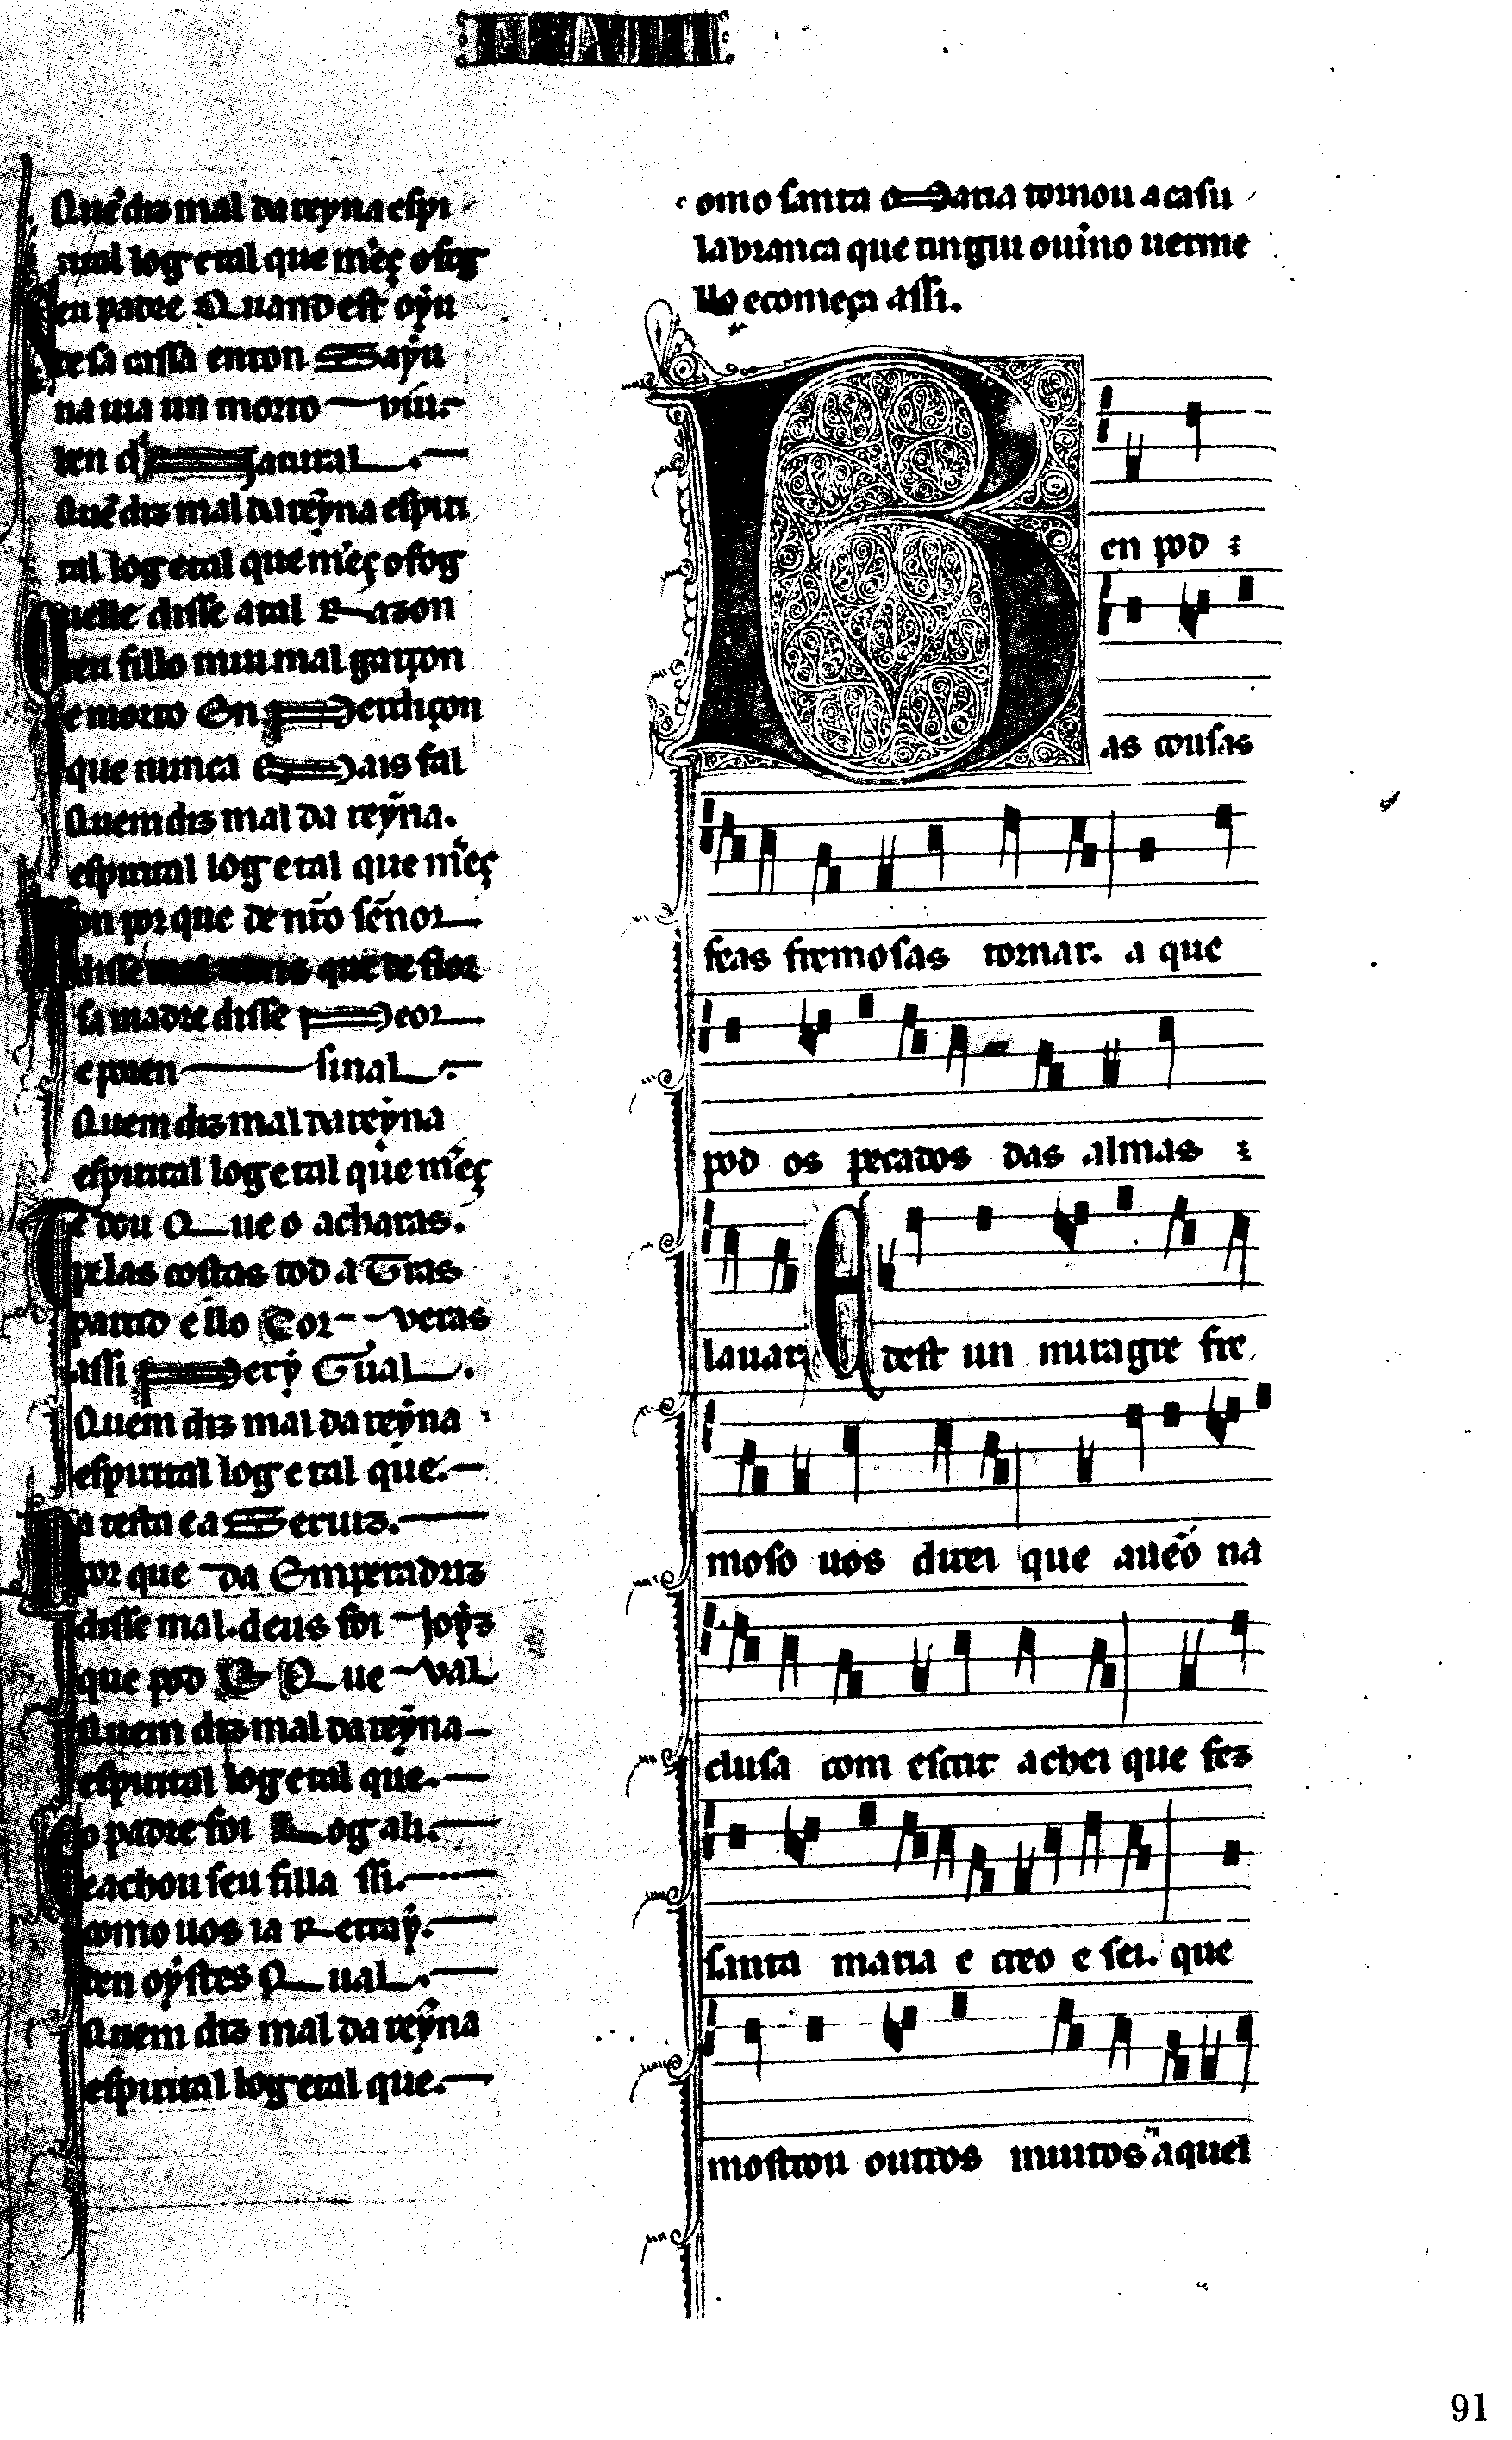 Quẽ diz mal da reyna espi
tal log e tal que mereç o fog
en padre Quand est oyu
te sa cassa enton Sayu
na uia un morto viu.
ten d sanual
Quẽ diz mal da reyna espiri
tal log e tal que mereç o fog
uelle disse atal Razon
teu fillo mui mal gaiçon
e morto En Perdiçon
que nunca Mais fal
Quem diz mal da reyna.
espirital log e tal que mereç
on por que de nr̃o sẽnor
disse mal mais que de flor
sa madre disse Peor
e poren sinal.
Quem diz mal da reyna
espirital log e tal que mereç
e dou Que o acharas.
pelas costas tod a Tras
partid e llo Cor veras
assi Pery Gual.
Quem diz mal da reyna
espirital log e tal que.
a testa e a Seruiz.
por que da Emperadriz
disse mal. deus foi Joyz
que pod E Que val
Quem diz mal da reyna
espirital log e tal que.
o padre foi Log ali.
e achou seu filla ssi.
como uos ia Retray.
ten oystes Qual.
Quem diz mal da reyna
espirital log e tal que.
omo santa Maria tornou a casu
la branca que tingiu o uino uerme
llo e começa assi.
Ben pod :
as cousas
feas fremosas tornar. a que
pod os pecados das almas :
lauar. E dest un miragre fre
moso uos direi que aueo na
clusa com escrit achei que fez
santa maria e creo e sei. que
mostrou outros muitos en aquel
91